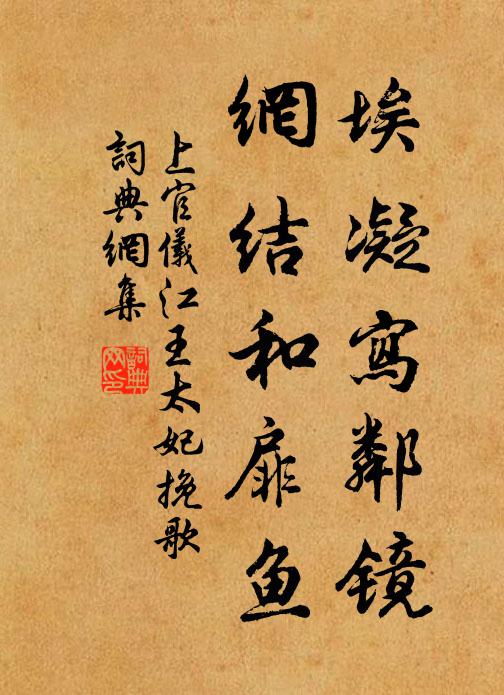 埃凝寫鄰镜
網结和扉鱼
上官儀江王太妃挽歌
詞典網集
詞典
网印